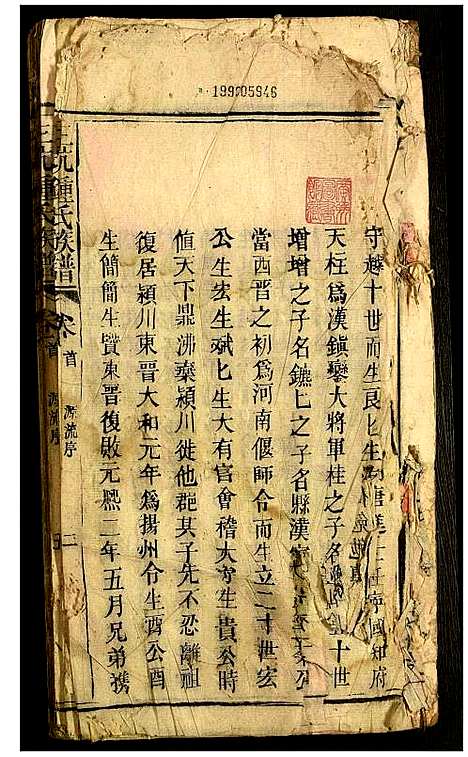 199205946
守越十世而生良匕生
天柱爲漢鎮蠻大將軍桂之子名 十世
增增之子名鑣匕之子名縣漢
當西晋之初爲河南偃師令而生立二十世宏
公生宏生斌匕生大有官會稽太守生貴公時
值天下鼎沸棄潁川徙他郡其子先不忍離祖
復居潁川東晋大和元年爲揚州令生酉公酉
生簡簡生贊東晋復敗元熙二年五月兄弟携
鍾氏族譜
卷首
源流序
二